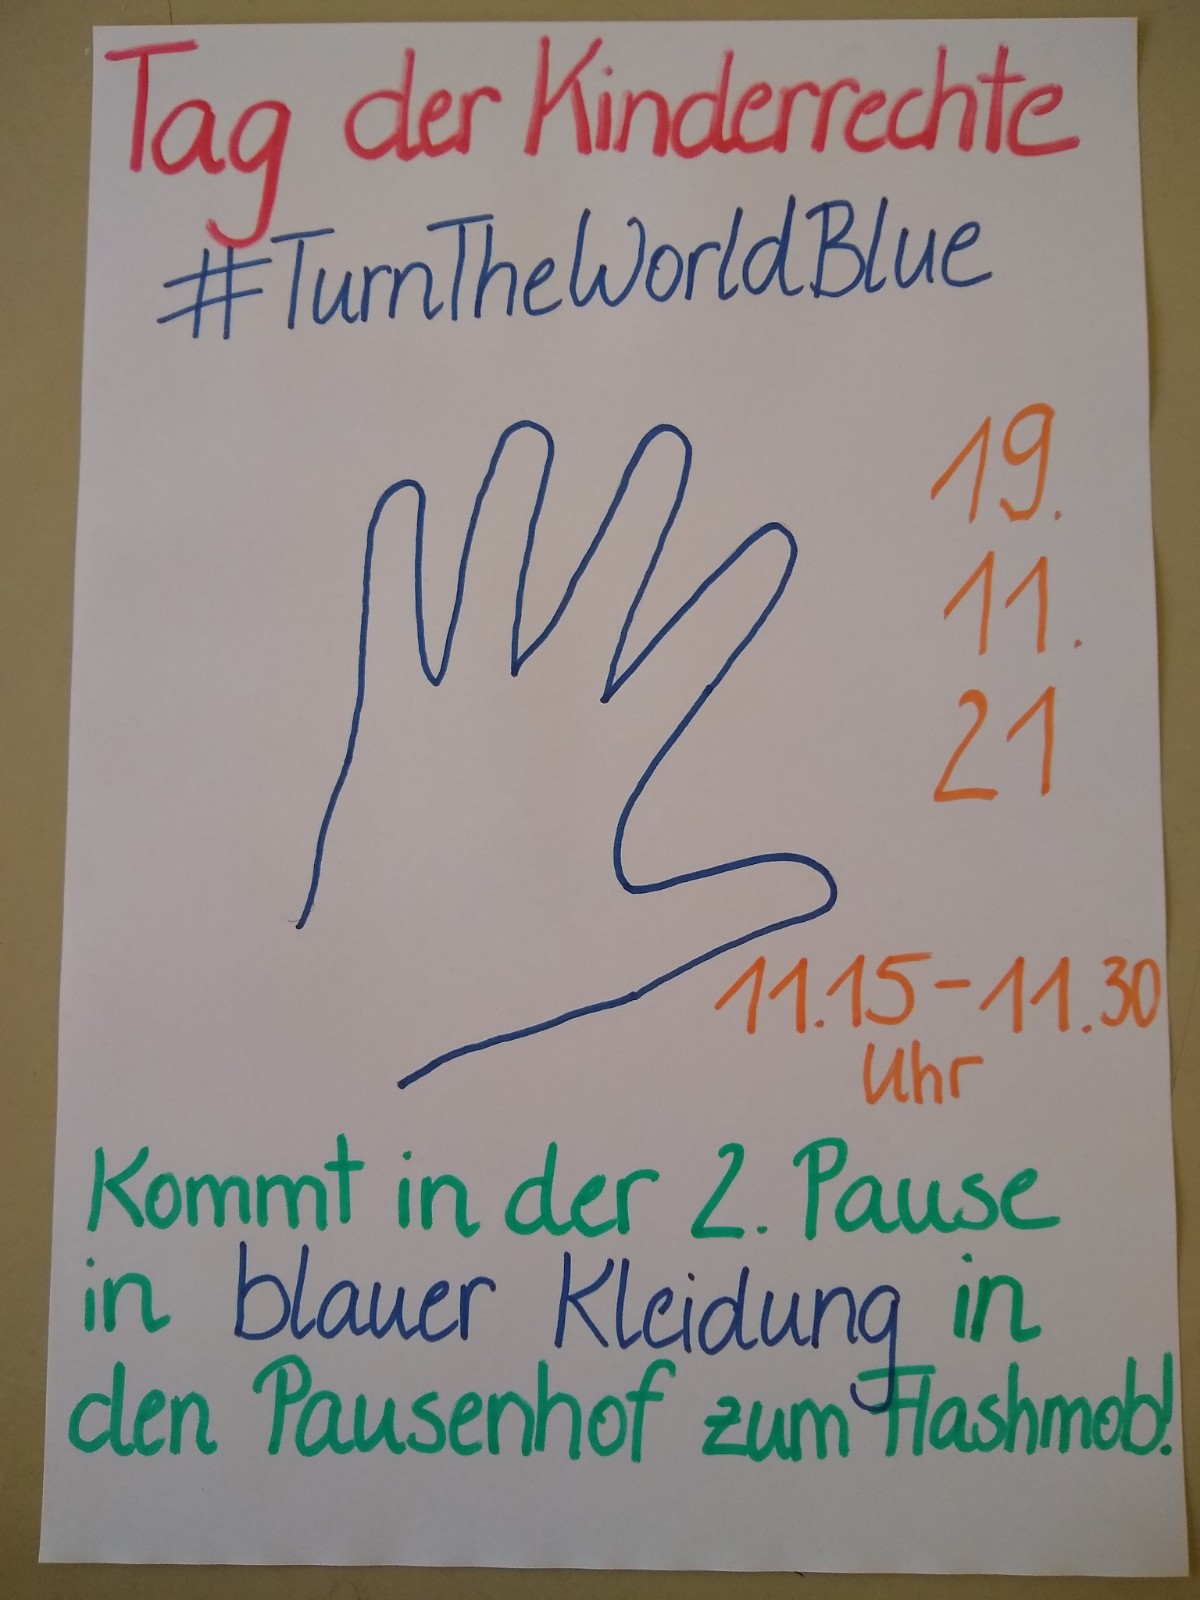 Tag der Kinderrechte
#TurnTheWorldBlue
19.
11.
21
11.15-11.30
Uhr
Kommt in der 2. Pause
in blauer Kleidung in
den Pausenhof zum Flashmob!